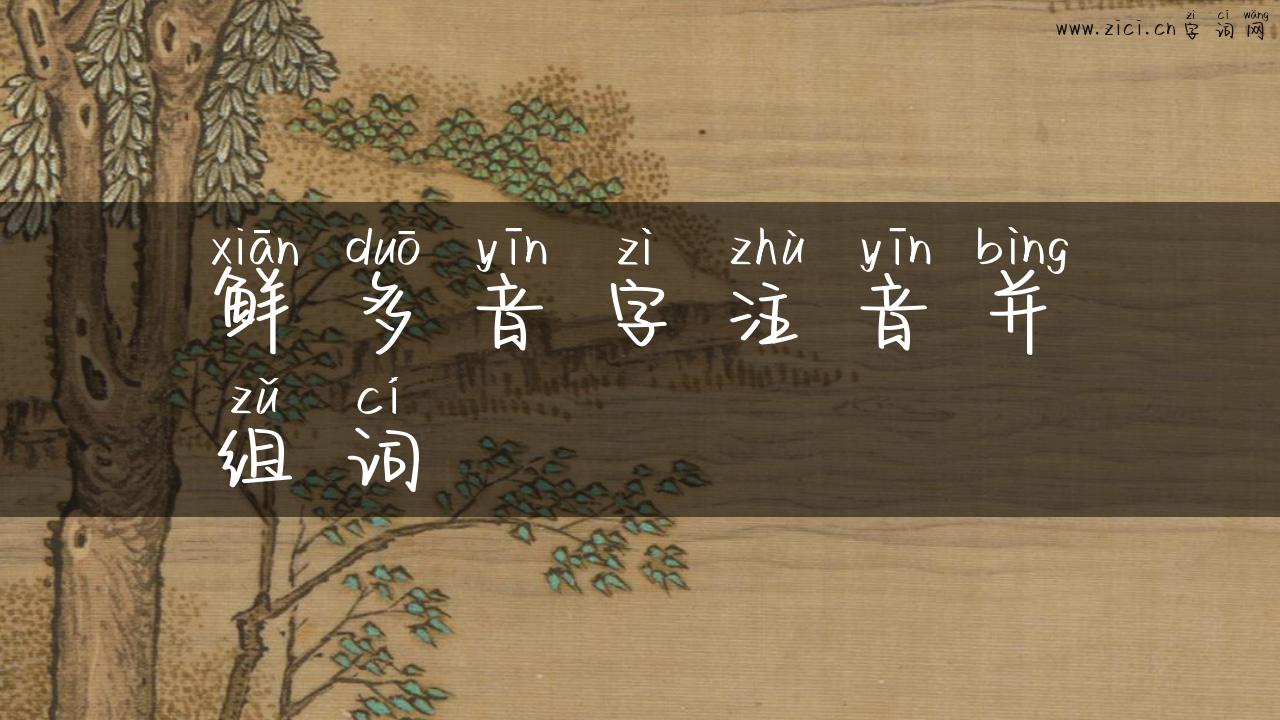 zì cí wǎng
www.zici.cn 字词网
xiān duō yīn zì zhù yīn bìng
鲜多音字注音并
zǔ cí
组词